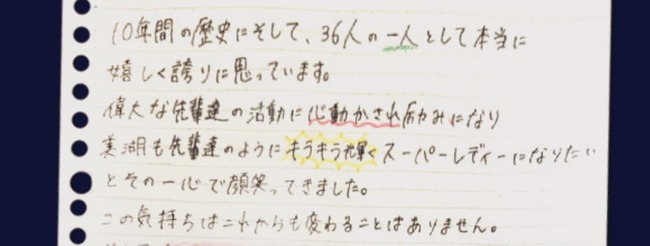 10年間の歴史にそして、36人の一人として本当に
嬉しく誇りに思っています。
偉大な先輩達の活動に心動かされ励みになり
美湖も先輩達のようにキラキラ輝くスーパーレディーになりたい
とその一心で顔笑ってきました。
この気持ちはこれからも変わることはありません。